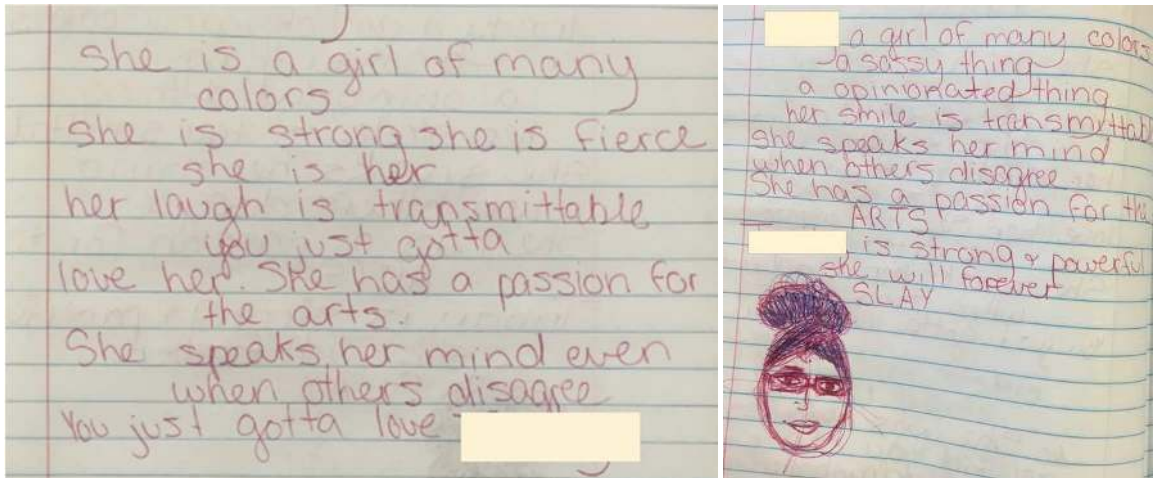 she is a girl of many
colors
she is strong she is fierce
she is her
her laugh is transmittable
you just gotta
love her. She has a passion for
the arts.
She speaks her mind even
when others disagree
You just gotta love
a girl of many colors
a sassy thing
a opinionated thing
her smile is transmittabl
she speaks her mind
when others disagree
She has a passion for the
ARTS
is strong & powerful
she will forever
SLAY